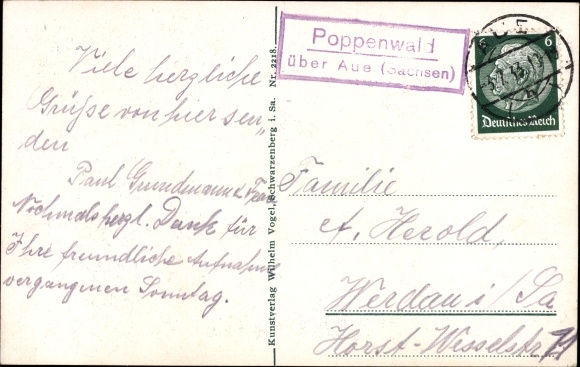 Viele herzliche
Grüße von hier sen-
den
Paul Grundmann u. Frau
Nochmals herzl. Dank für
Ihre freundliche Aufnahme
vergangenen Sonntag.
Kunstverlag Wilhelm Vogel, Schwarzenberg i. Sa. Nr. 2218.
Poppenwald
über Aue (Sachsen)
6 6
Deutsches Reich
Familie
A. Herold,
Werdau i/Sa
Horst-Wesselstr